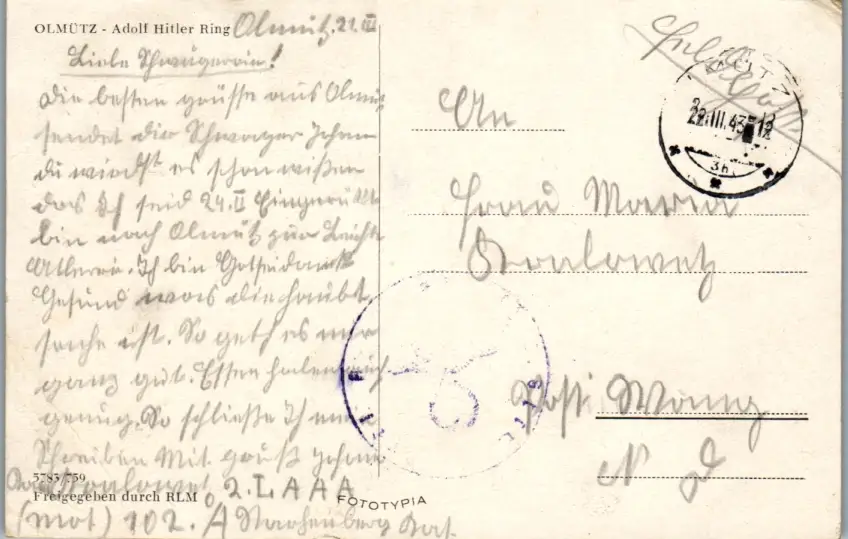 OLMÜTZ - Adolf Hitler Ring Olmütz, 21.III
Liebe Schwägerin!
Die besten grüsse aus Olmütz
sendet dir Schwager Johan
du wirdst es schon wißen
das Ich seid 24.II Eingerückt
bin nach Olmütz zur Leichte
Atlerie. Ich bin Gottseidank
Gesund was die haubt
sache ist. So geth es mir
ganz gut. Essen haben wir
genug. So schließe Ich mein
Schreiben Mit gruß Johan
5783/759
2. L A A A
Freigegeben durch RLM
FOTOTYPIA
(mot) 102.
Feldpost
22.III.43-12
An
Frau Maria
Post Wang
N D